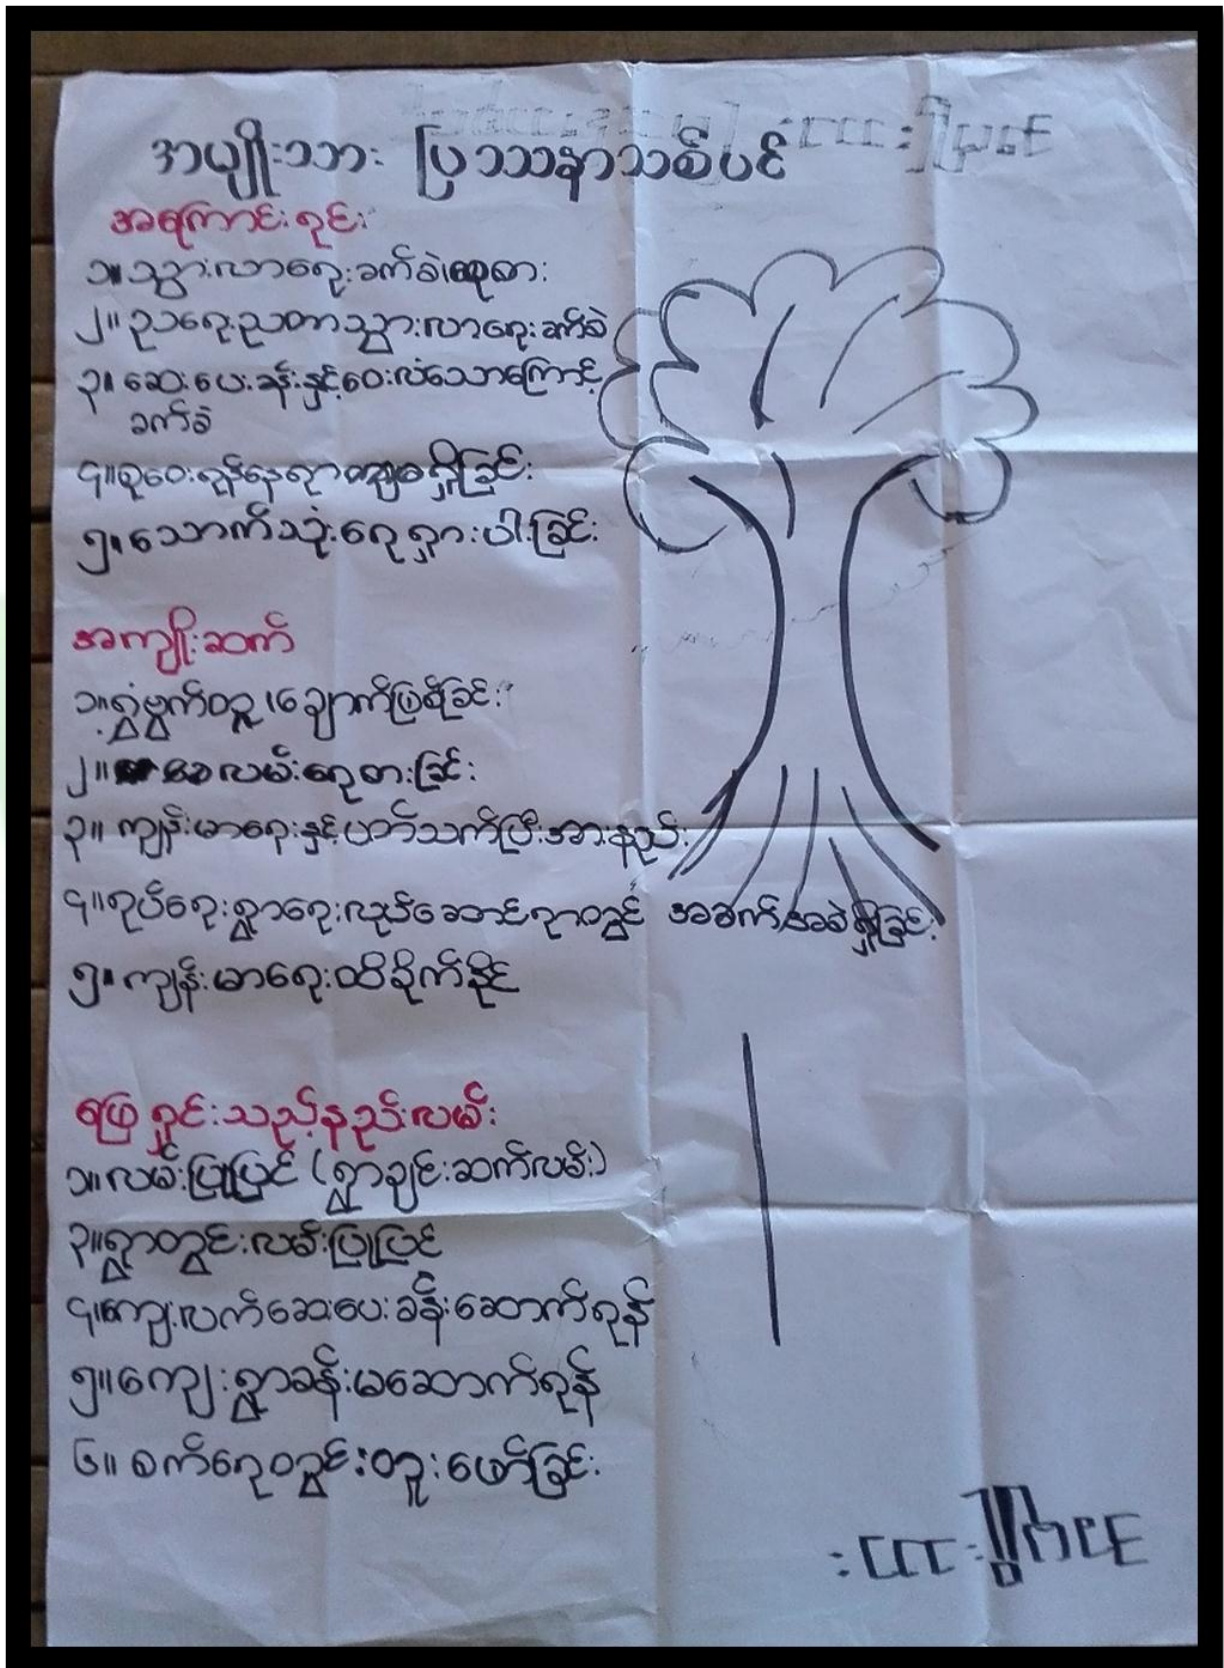 အမျိုးသား ပြဿနာသစ်ပင်
အကြောင်းရင်း
၁။ သွားလာရေးခက်ခဲ
၂။ ဥပရေးညတာသွားလာရေးခက်ခဲ
၃။ ဆေးပေးခန်းနှင့်ဝေးလံသောကြောင့်
ခက်ခဲ
၄။ စုဝေးရန်နေရာ ရှိခြင်း
၅။ သောက်သုံးရေရှားပါးခြင်း
အကျိုးဆက်
၁။ ရွှံ့ဗွက်ထူ၊ ချောက်ဖြစ်ခြင်း
၂။ လမ်းရေစားခြင်း
၃။ ကျန်းမာရေးနှင့်ပတ်သက်ပြီးအားနည်း
၄။ ရပ်ရေးရွာရေးလုပ်ဆောင်ရာတွင် အခက်အခဲရှိခြင်း
၅။ ကျန်းမာရေးထိခိုက်နိုင်
ဖြေရှင်းသည့်နည်းလမ်း
၁။ လမ်းပြုပြင် (ရွာချင်းဆက်လမ်း)
၃။ ရွာတွင်းလမ်းပြုပြင်
၄။ ကျေးလက်ဆေးပေးခန်းဆောက်ရန်
၅။ ကျေးရွာခန်းမဆောက်ရန်
၆။ စက်ရေတွင်းတူးဖော်ခြင်း